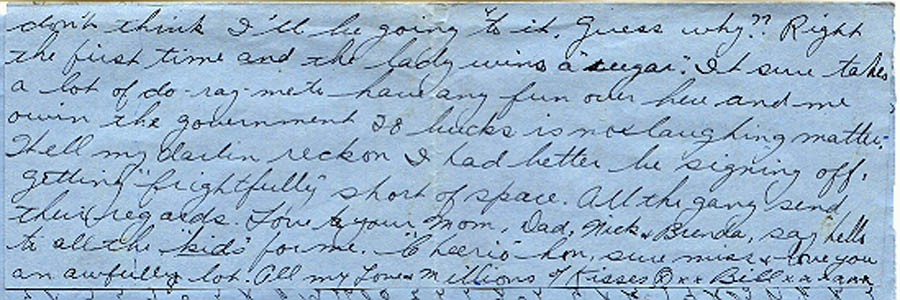 don't think I'll be going to it. Guess why?? Right
the first time and the lady wins a "seegar". It sure takes
a lot of do-rag-me to have any fun over here and me
owin the government 28 bucks is no laughing matter.
Well my darlin reckon I had better be signing off,
getting "frightfully" short of space. All the gang send
their regards. Love to your Mom, Dad, Nick & Brenda, say hello
to all the "kids" for me. "Cheerio" hon, sure miss & love you
an awfully lot. All my Love & Millions of Kisses x x Bill x x x x x